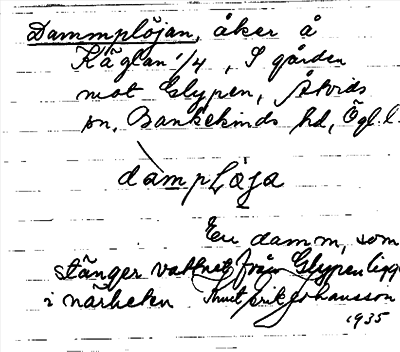 Dammplöjan, åker å
Käglan 1/4, S gården
mot Glypen, Åtvids
sn, Bankekinds hd, Ögl.l.
dampLøja
En damm, som
stänger vattnet från Glypen ligger
i närheten Knut Erik Johansson
1935